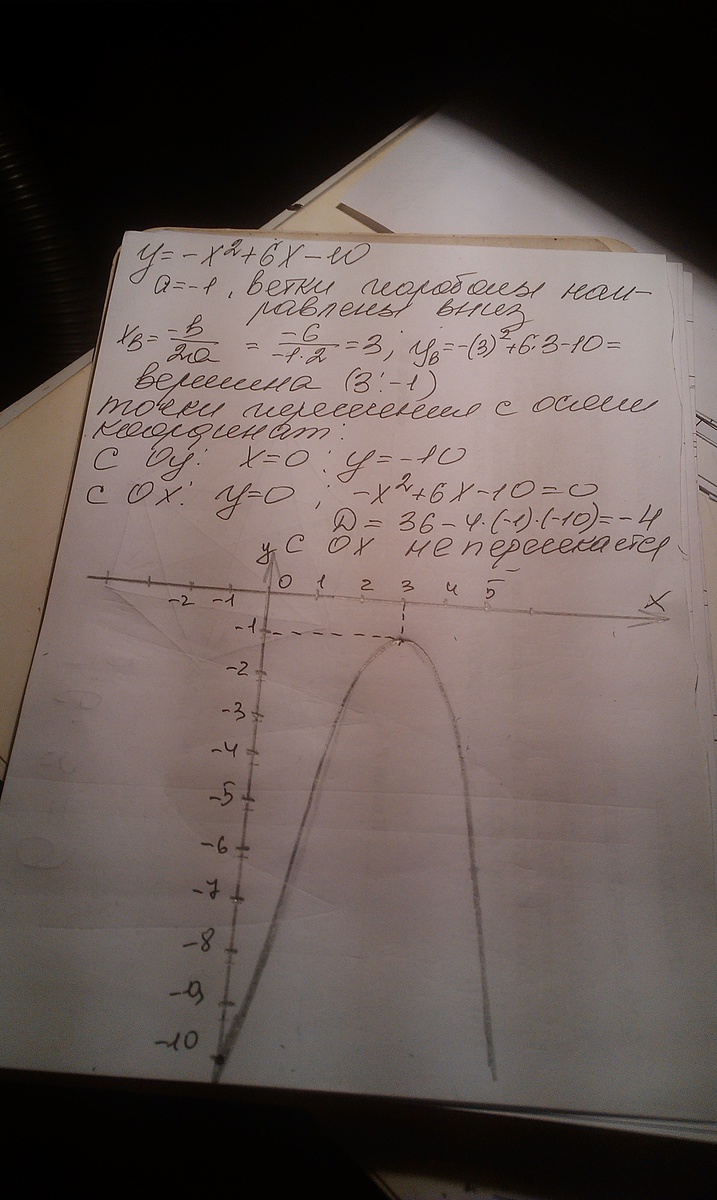 y=-x²+6x-10
a=-1, ветки параболы нап-
равлены вниз
xв=-b/2a = -6/-1·2=3; yв=-(3)²+6·3-10=
вершина (3;-1)
точки пересечения с осями
координат:
с Oy: x=0: y=-10
с Ox: y=0; -x²+6x-10=0
D=36-4·(-1)·(-10)=-4
с OX не пересекается
y
-2 -1 0 1 2 3 4 5 X
-1
-2
-3
-4
-5
-6
-7
-8
-9
-10